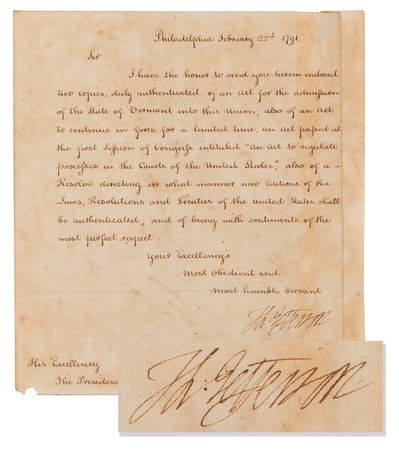 Philadelphia February 22d 1791.
Sir
I have the honor to send you herein enclosed
two copies, duly authenticated, of an Act for the admission
of the State of Vermont into this Union, also of an Act
to continue in force for a limited time, an act passed at
the first Session of Congress intituled "An act to regulate
processes in the Courts of the United States", also of a
Resolve directing in what manner new Editions of the
Laws, Resolutions and Treaties of the United States shall
be authenticated, and of being with sentiments of the
most perfect respect
Your Excellency's
Most Obedient and
most humble Servant
Th: Jefferson
His Excellency
The Presiden
Th: Jefferson